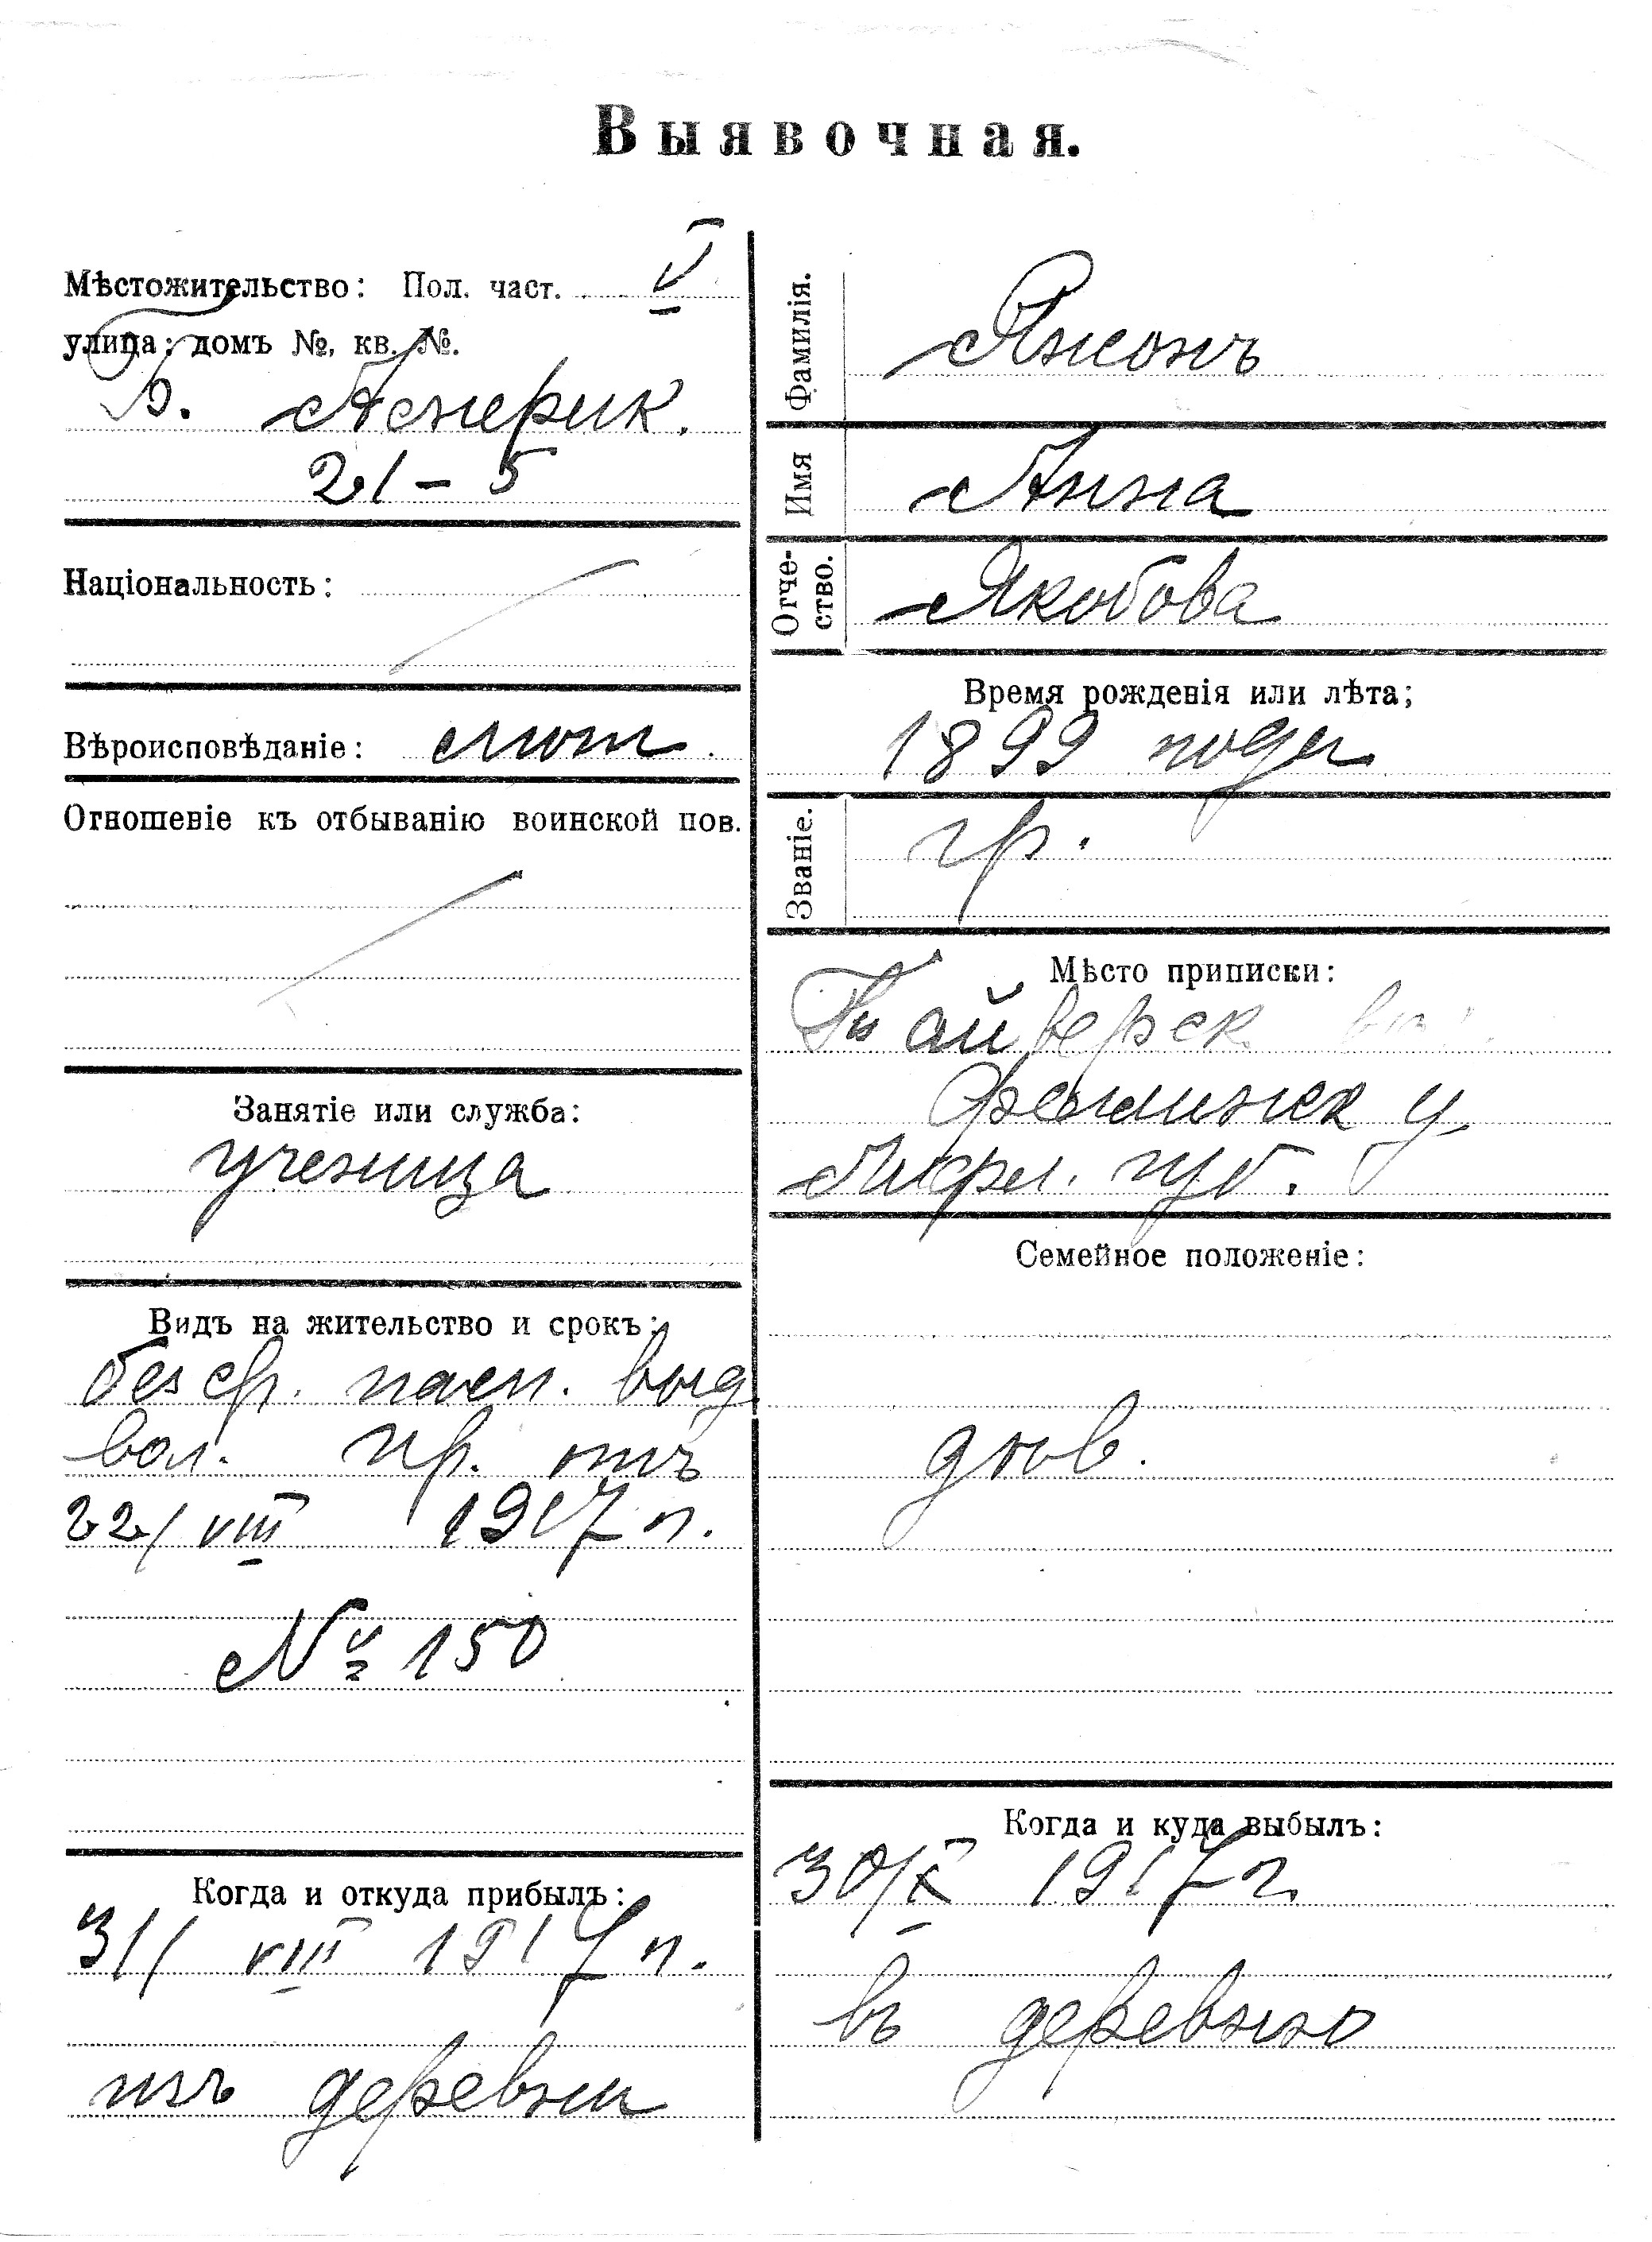 Выявочная.
Мѣстожительство: Пол. част. V
улица; домъ №, кв. №.
Б. Америк.
21 – 5
Національность:
Вѣроисповѣданіе: лют.
Отношеніе къ отбыванію воинской пов.
Занятіе или служба:
ученица
Видъ на жительство и срокъ:
безср. пасп. выд.
вол. пр. отъ
22/VIII 1917 г.
№ 150
Когда и откуда прибылъ:
31/VIII 1917 г.
изъ деревни
Фамилія. Янсонъ
Имя Анна
Отчество. Якобова
Время рожденія или лѣта;
1899 года
Званіе. гр.
Мѣсто приписки:
у.
губ.
Семейное положеніе:
дѣв.
Когда и куда выбылъ:
30/X 1917 г.
въ деревню